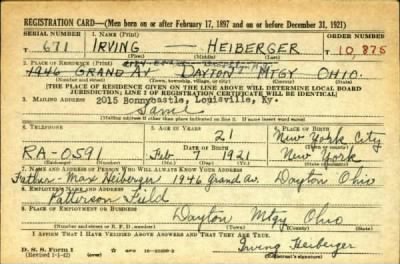 REGISTRATION CARD—(Men born on or after February 17, 1897 and on or before December 31, 1921)
SERIAL NUMBER 1. NAME (Print) ORDER NUMBER
T 671 IRVING — HEIBERGER T 10,875
(First) (Middle) (Last)
2. PLACE OF RESIDENCE (Print)
1946 GRAND AV. DAYTON MTGY OHIO.
(Number and street) (Town, township, village, or city) (County) (State)
[THE PLACE OF RESIDENCE GIVEN ON THE LINE ABOVE WILL DETERMINE LOCAL BOARD
JURISDICTION; LINE 2 OF REGISTRATION CERTIFICATE WILL BE IDENTICAL]
2015 Bonnycastle, Louisville, Ky.
3. MAILING ADDRESS
Same
[Mailing address if other than place indicated on line 2. If same insert word same]
4. TELEPHONE 5. AGE IN YEARS 6. PLACE OF BIRTH
21 New York City
DATE OF BIRTH (Town or county)
RA-0591 Feb 7 1921 New York
(Exchange) (Number) (Mo.) (Day) (Yr.) (State or country)
7. NAME AND ADDRESS OF PERSON WHO WILL ALWAYS KNOW YOUR ADDRESS
Father - Max Heiberger 1946 Grand Av. Dayton Ohio
8. EMPLOYER'S NAME AND ADDRESS
Patterson Field
9. PLACE OF EMPLOYMENT OR BUSINESS
Dayton Mtgy Ohio
(Number and street or R. F. D. number) (Town) (County) (State)
I AFFIRM THAT I HAVE VERIFIED ABOVE ANSWERS AND THAT THEY ARE TRUE.
D. S. S. Form 1
(Revised 1-1-42) Irving Heiberger